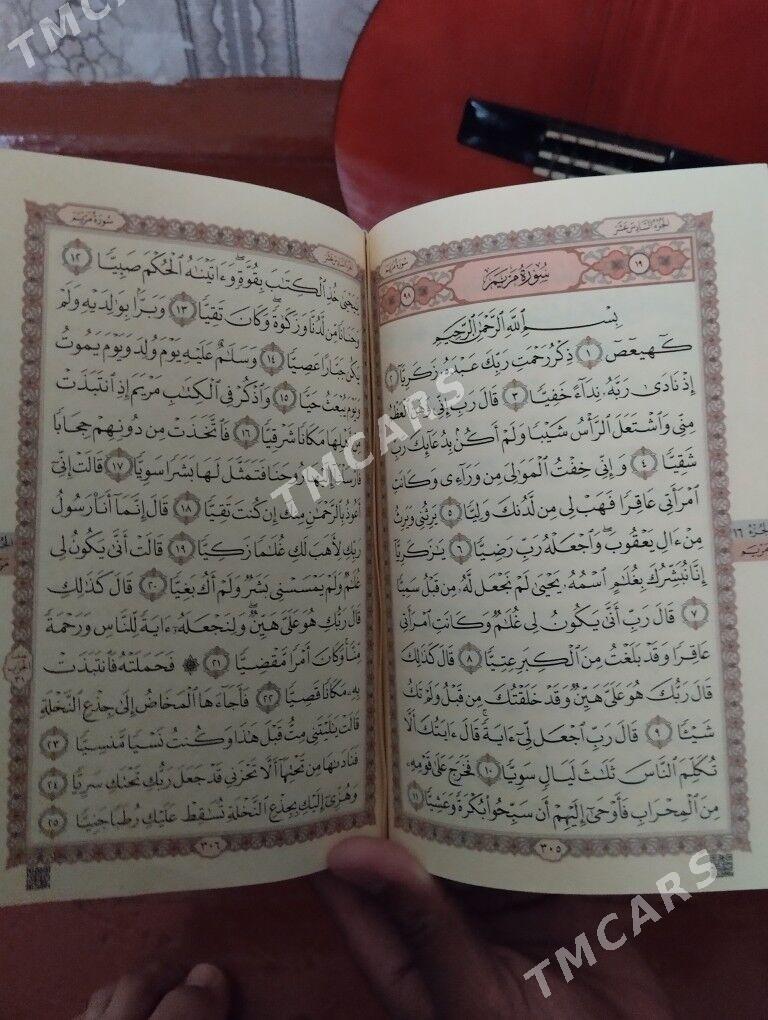 TMCARS
الجزء السادس عشر
سورة مريم
١٩
سُورَةُ مَرْيَمَ
٩٨
بِسْمِ ٱللَّهِ ٱلرَّحْمَٰنِ ٱلرَّحِيمِ
كٓهيعٓصٓ ١ ذِكْرُ رَحْمَتِ رَبِّكَ عَبْدَهُۥ زَكَرِيَّآ ٢
إِذْ نَادَىٰ رَبَّهُۥ نِدَآءً خَفِيًّا ٣ قَالَ رَبِّ إِنِّى وَهَنَ ٱلْعَظْمُ
مِنِّى وَٱشْتَعَلَ ٱلرَّأْسُ شَيْبًا وَلَمْ أَكُنۢ بِدُعَآئِكَ رَبِّ
شَقِيًّا ٤ وَإِنِّى خِفْتُ ٱلْمَوَٰلِىَ مِن وَرَآءِى وَكَانَتِ
ٱمْرَأَتِى عَاقِرًا فَهَبْ لِى مِن لَّدُنكَ وَلِيًّا ٥ يَرِثُنِى وَيَرِثُ
مِنْ ءَالِ يَعْقُوبَ ۖ وَٱجْعَلْهُ رَبِّ رَضِيًّا ٦ يَٰزَكَرِيَّآ
إِنَّا نُبَشِّرُكَ بِغُلَٰمٍ ٱسْمُهُۥ يَحْيَىٰ لَمْ نَجْعَل لَّهُۥ مِن قَبْلُ سَمِيًّا
٧ قَالَ رَبِّ أَنَّىٰ يَكُونُ لِى غُلَٰمٌ وَكَانَتِ ٱمْرَأَتِى
عَاقِرًا وَقَدْ بَلَغْتُ مِنَ ٱلْكِبَرِ عِتِيًّا ٨ قَالَ كَذَٰلِكَ
قَالَ رَبُّكَ هُوَ عَلَىَّ هَيِّنٌ وَقَدْ خَلَقْتُكَ مِن قَبْلُ وَلَمْ تَكُ
شَيْـًٔا ٩ قَالَ رَبِّ ٱجْعَل لِّىٓ ءَايَةً ۚ قَالَ ءَايَتُكَ أَلَّا
تُكَلِّمَ ٱلنَّاسَ ثَلَٰثَ لَيَالٍ سَوِيًّا ١٠ فَخَرَجَ عَلَىٰ قَوْمِهِۦ
مِنَ ٱلْمِحْرَابِ فَأَوْحَىٰٓ إِلَيْهِمْ أَن سَبِّحُوا۟ بُكْرَةً وَعَشِيًّا ١١
٣٠٥
سورة مريم
يَٰيَحْيَىٰ خُذِ ٱلْكِتَٰبَ بِقُوَّةٍ ۖ وَءَاتَيْنَٰهُ ٱلْحُكْمَ صَبِيًّا ١٢
وَحَنَانًا مِّن لَّدُنَّا وَزَكَوٰةً ۖ وَكَانَ تَقِيًّا ١٣ وَبَرًّۢا بِوَٰلِدَيْهِ وَلَمْ
يَكُن جَبَّارًا عَصِيًّا ١٤ وَسَلَٰمٌ عَلَيْهِ يَوْمَ وُلِدَ وَيَوْمَ يَمُوتُ
وَيَوْمَ يُبْعَثُ حَيًّا ١٥ وَٱذْكُرْ فِى ٱلْكِتَٰبِ مَرْيَمَ إِذِ ٱنتَبَذَتْ
مِنْ أَهْلِهَا مَكَانًا شَرْقِيًّا ١٦ فَٱتَّخَذَتْ مِن دُونِهِمْ حِجَابًا
فَأَرْسَلْنَآ إِلَيْهَا رُوحَنَا فَتَمَثَّلَ لَهَا بَشَرًا سَوِيًّا ١٧ قَالَتْ إِنِّىٓ
أَعُوذُ بِٱلرَّحْمَٰنِ مِنكَ إِن كُنتَ تَقِيًّا ١٨ قَالَ إِنَّمَآ أَنَا۠ رَسُولُ
رَبِّكِ لِأَهَبَ لَكِ غُلَٰمًا زَكِيًّا ١٩ قَالَتْ أَنَّىٰ يَكُونُ لِى
غُلَٰمٌ وَلَمْ يَمْسَسْنِى بَشَرٌ وَلَمْ أَكُ بَغِيًّا ٢٠ قَالَ كَذَٰلِكِ
قَالَ رَبُّكِ هُوَ عَلَىَّ هَيِّنٌ ۖ وَلِنَجْعَلَهُۥٓ ءَايَةً لِّلنَّاسِ وَرَحْمَةً
مِّنَّا ۚ وَكَانَ أَمْرًا مَّقْضِيًّا ٢١ ۞ فَحَمَلَتْهُ فَٱنتَبَذَتْ
بِهِۦ مَكَانًا قَصِيًّا ٢٢ فَأَجَآءَهَا ٱلْمَخَاضُ إِلَىٰ جِذْعِ ٱلنَّخْلَةِ
قَالَتْ يَٰلَيْتَنِى مِتُّ قَبْلَ هَٰذَا وَكُنتُ نَسْيًا مَّنسِيًّا ٢٣
فَنَادَىٰهَا مِن تَحْتِهَآ أَلَّا تَحْزَنِى قَدْ جَعَلَ رَبُّكِ تَحْتَكِ سَرِيًّا ٢٤
وَهُزِّىٓ إِلَيْكِ بِجِذْعِ ٱلنَّخْلَةِ تُسَٰقِطْ عَلَيْكِ رُطَبًا جَنِيًّا ٢٥
٣٠٦
TMCARS
TMCARS